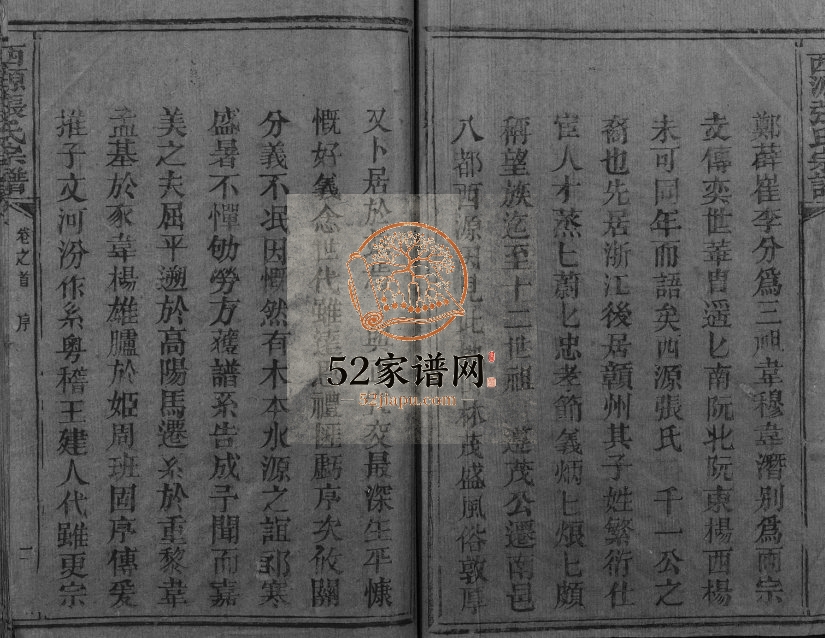 西源張氏宗譜
鄭薛崔李分爲三祖韋穆韋潛別爲兩宗
文傳奕世華胄遥匕南阮北阮東楊西楊
未可同年而語矣西源張氏 千一公之
裔也先居浙江後居贛州其子姓繁衍仕
宦人才蒸匕蔚匕忠孝節義炳匕烺匕頗
稱望族迄至十二世祖 蓬茂公遷南邑
八都西源 林茂盛風俗敦厚
又卜居於 交最深生平慷
慨好義念世代雖 禮匪虧序次攸關
分義不泯因慨然有木本水源之誼祁寒
盛暑不憚劬勞方獲譜系告成予聞而嘉
美之夫屈平遡於高陽馬遷系於重黎韋
孟基於豕韋楊雄臚於姬周班固序傳爰
推子文河汾作系粤稽王建人代雖更宗
西源張氏宗譜
卷之首 序
二
52家谱网
52jiapu.com